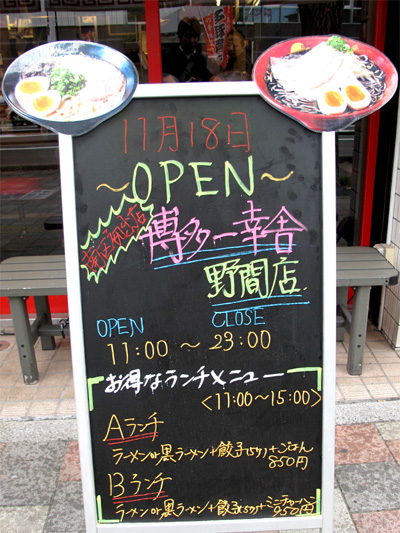 11月18日
～OPEN～
博多一幸舎
野間店
OPEN CLOSE
11:00 ～ 23:00
お得なランチメニュー
<11:00～15:00>
Aランチ
ラーメンor黒ラーメン+餃子(5ケ)+ごはん
850円
Bランチ
ラーメンor黒ラーメン+餃子(5ケ)+ミニチャーハン
950円